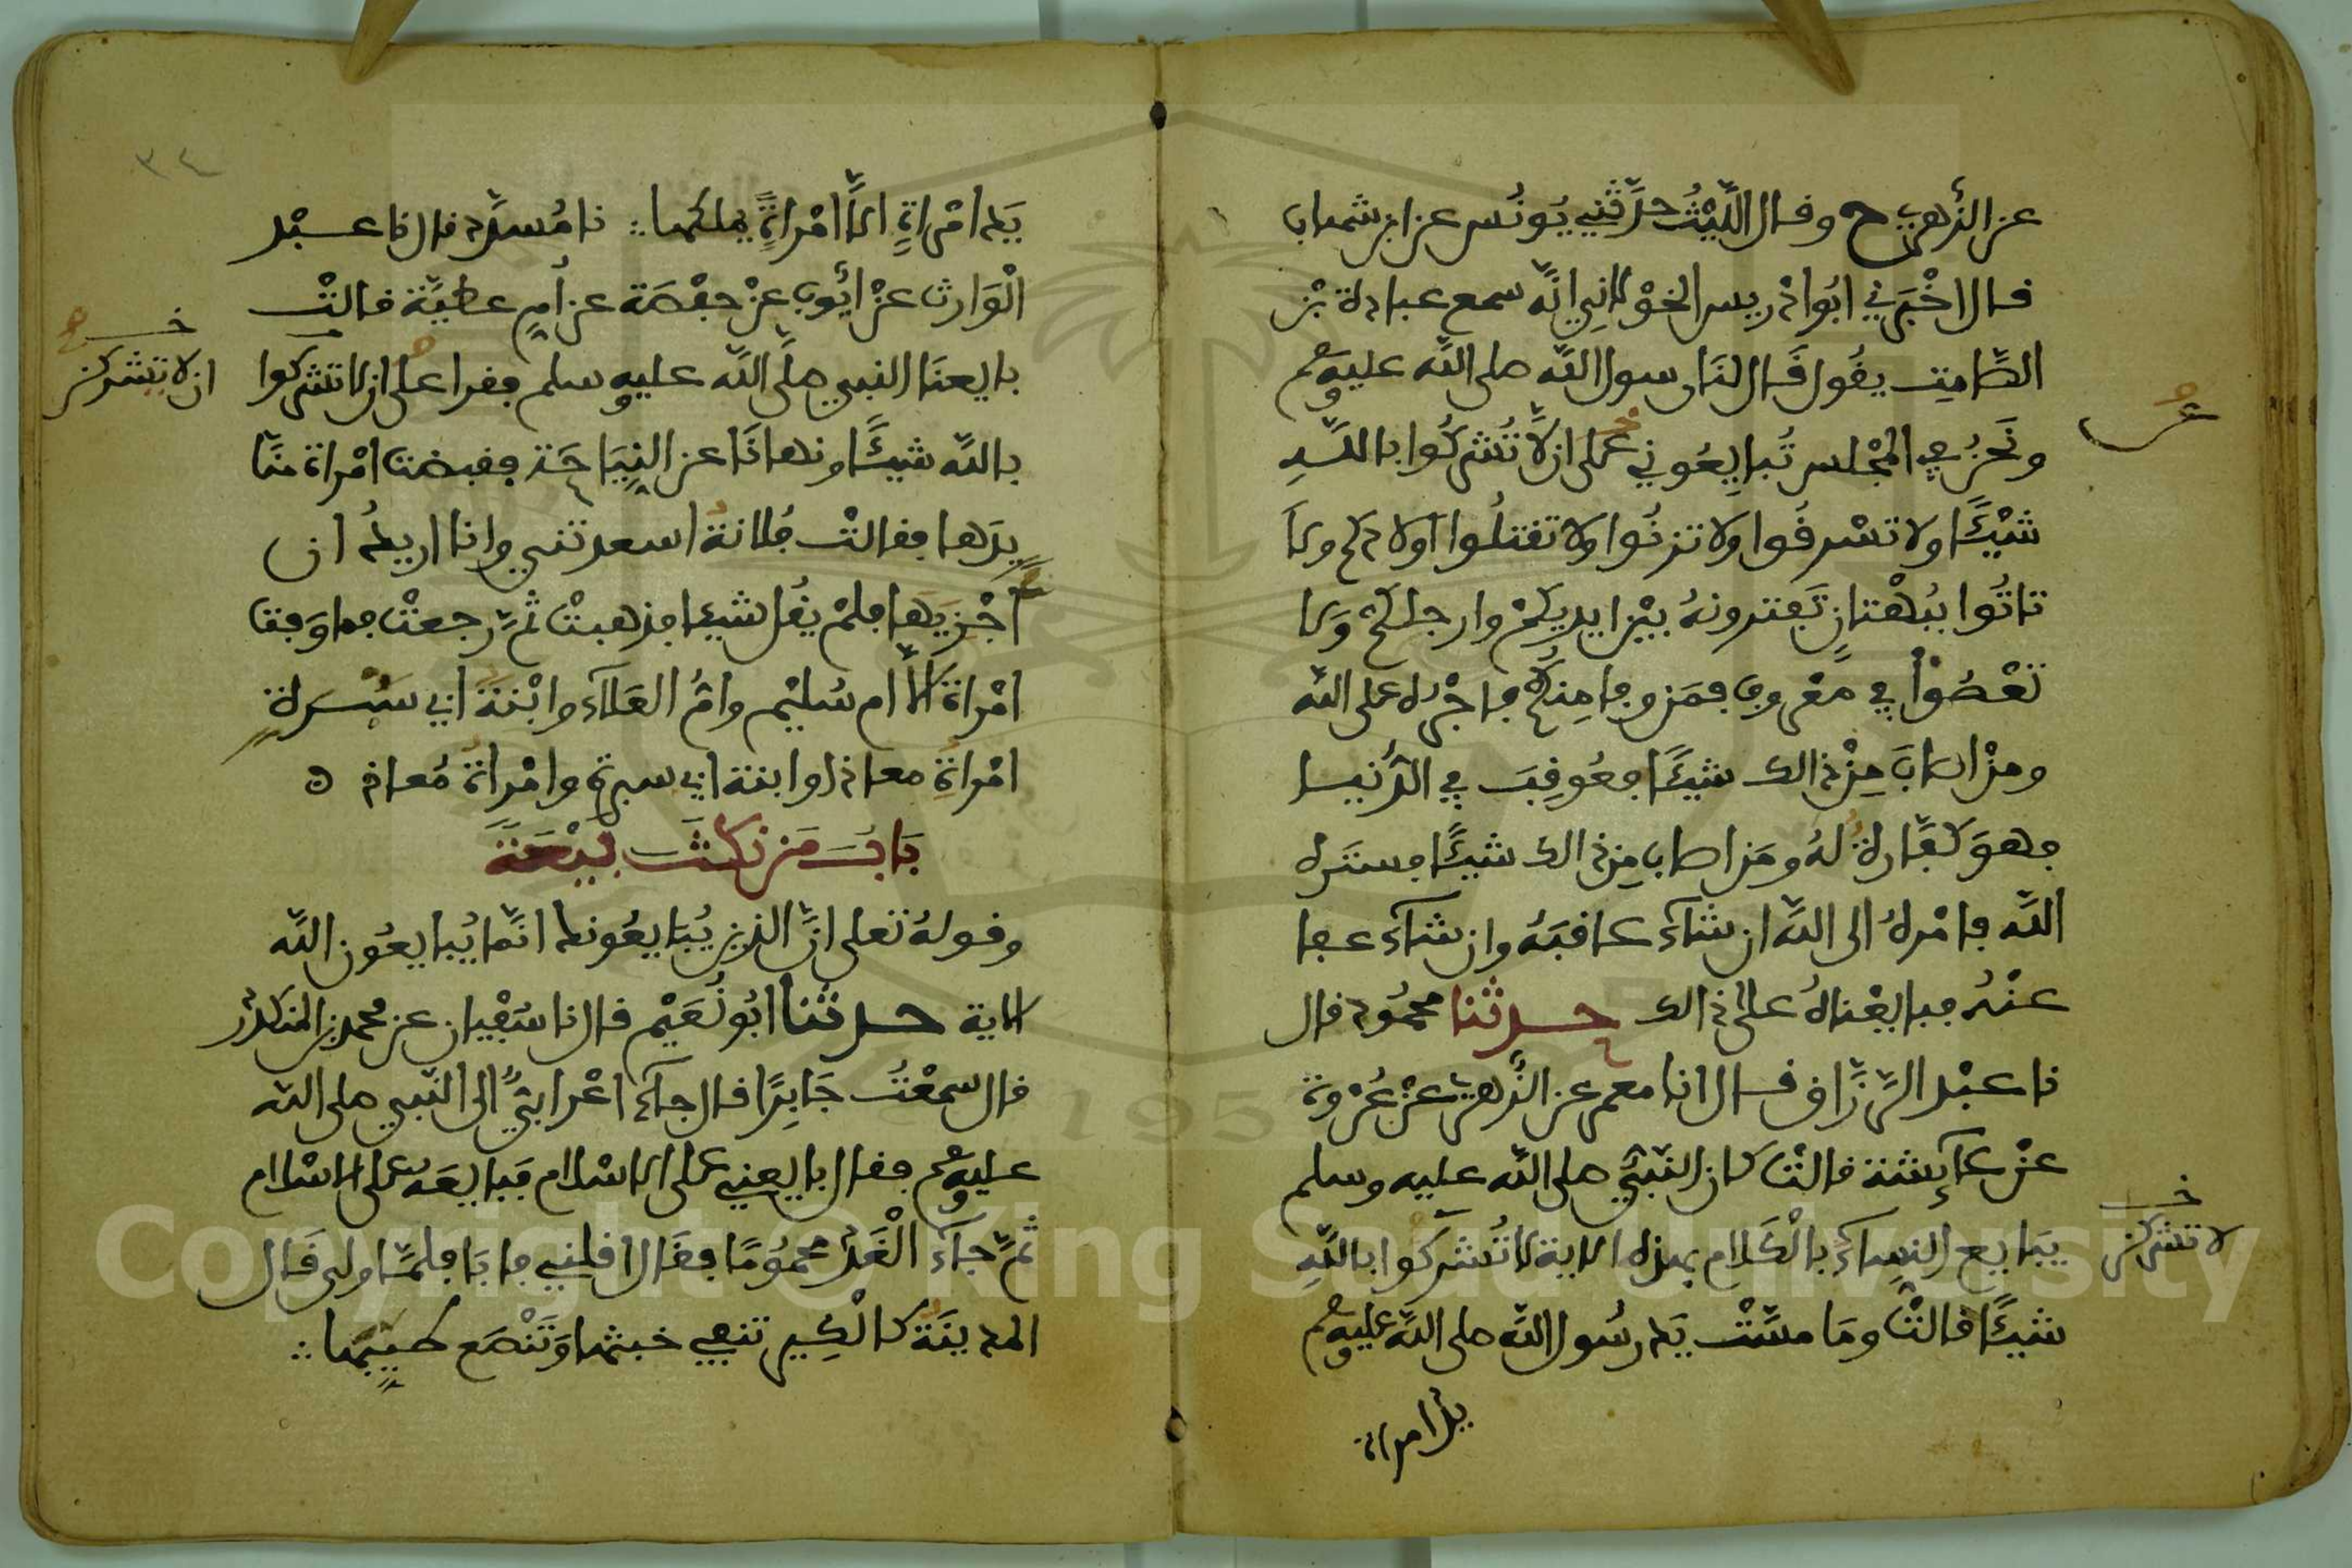 عن الزهري ح وقال اللَّيْثُ حدَّثني يُونُس عن ابن شهاب
قال اخْبَرني ابُو ادْريس الخوْلانِي انَّه سمع عبادة بْن
الصَّامِت يقُول قَال لنَا رسول اللَّه صلى اللَّه عليه وسلم
ونَحْنُ في المجْلس تُبايِعُوني على ان لَّا تُشركُوا باللَّه
شيْـًٔا ولا تسْرقُوا ولا تزنُوا ولا تقتلُوا اولادكم ولا
تاتُوا ببُهْتانٍ تَفترونهُ بيْن ايديكمْ وارجلكُمْ وَلا
تعْصُوْا في معْروفٍ فمَن وفا مِنكُمْ فاجْره على الله
ومنْ اصابَ مِنْ ذالك شيـًٔا فعُوقِبَ في الدُّنيا
فهوَ كفَّارةٌ لهُ ومَن اصاب مِن ذالك شيـًٔا فستَره
اللَّه فامْرهُ الى اللَّه ان شآءَ عاقبَهُ وان شآءَ عفا
عنْهُ فبايعْناهُ على ذالك حدثنا محمُود قال
نا عبْد الرَّزَّاق قال انا معمر عن الزُّهري عنْ عُرْوة
عنْ عآئشة قالتْ كان النَّبيُّ صلى اللَّه عليه وسلم
يبَايع النِساءَ بالْكَلام بهذه الاية لا تُشركوا باللَّهِ
شيـًٔا قالتْ ومَا مسَّتْ يَد رسُول اللَّه صلى اللَّه عليه وسلم
يد امراة
خ
لا تشركن
٣٤
يَد امْراةٍ الَّا امْراةً يملكها نا مُسدَّد قال نا عبْد
الْوَارث عنْ ايُّوب عنْ حفْصَة عن اُم عطيَّة قالتْ
بايعنَا النبي صلَّى اللَّه عليه وسلم فقرا علَى ان لا تشركوا
باللَّه شيـًٔا ونهانَا عن النِيَاحَة فقبضت امْراة منَّا
يدَها فقالتْ فُلانةُ اسعدتني وانا اريدُ ان
اجْزيَهَا فلمْ يقُل شيـا فذهبتْ ثُمَّ رجعتْ فما وَفت
امْراة الَّا ام سُليْم وامُّ العَلآء وابْنَةُ ابي سَبْرَة
امْراةِ معاذ او ابنة ابي سبرة وامْراةُ مُعاذ ه
بَابُ مَن نكثَ بيْعَةً
وقولهُ تعلى انَّ الذين يُبَايعُونك انَّما يُبايعُون اللَّه
الاية حدثنا ابُو نُعَيْم قال نا سُفْيان عن محمد بن المنكدر
قال سمعْتُ جَابِرًا قال جآءَ اعْرابيٌّ الى النَّبي صلى الله
عليه وسلم فقال بايعني على الاسْلام فبَايعَهُ على الاسْلام
ثُمَّ جآءَ الْغَد محمُومًا فقَال اقلني فابَا فلمَّا ولى قَال
المدينَةُ كالْكِير تنفي خبثها وَتَنْصَع طيبها
خ
ان لا يشركن